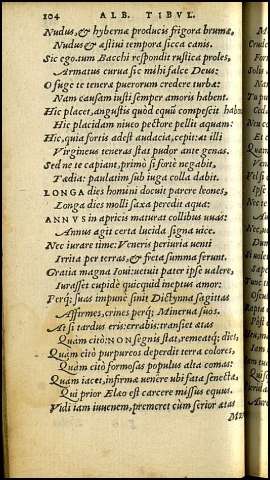 104 ALB. TIBVL.
Nudus, & hybernæ producis frigora brumæ,
Nudus & æstiui tempora sicca canis.
Sic ego. tum Bacchi respondit rustica proles,
Armatus curua sic mihi falce Deus:
O fuge te teneræ puerorum credere turbæ:
Nam causam iusti semper amoris habent.
Hic placet, angustis quòd equũ compescit habenis
Hic placidam niueo pectore pellit aquam:
Hic, quia fortis adest audacia, cepit: at illi
Virgineus teneras stat pudor ante genas.
Sed ne te capiant, primò si fortè negabit,
Tædia: paulatim sub iuga colla dabit.
LONGA dies homini docuit parere leones,
Longa dies molli saxa peredit aqua:
ANNVS in apricis maturat collibus uuas:
Annus agit certa lucida signa uice.
Nec iurare time: Veneris periuria uenti
Irrita per terras, & freta summa ferunt.
Gratia magna Ioui: uetuit pater ipse ualere,
Iurasset cupidè quicquid ineptus amor:
Perq; suas impunè sinit Dictynna sagittas
Affirmes, crines perq; Minerua suos.
At si tardus eris: errabis: transiet ætas
Quàm citò: NON segnis stat, remeatq; dies,
Quàm citò purpureos deperdit terra colores,
Quàm citò formosas populus alta comas:
Quàm iacet, infirmæ uenêre ubi fata senectæ,
Qui prior Elæo est carcere missus equus.
Vidi iam iuuenem, premeret cùm serior ætas